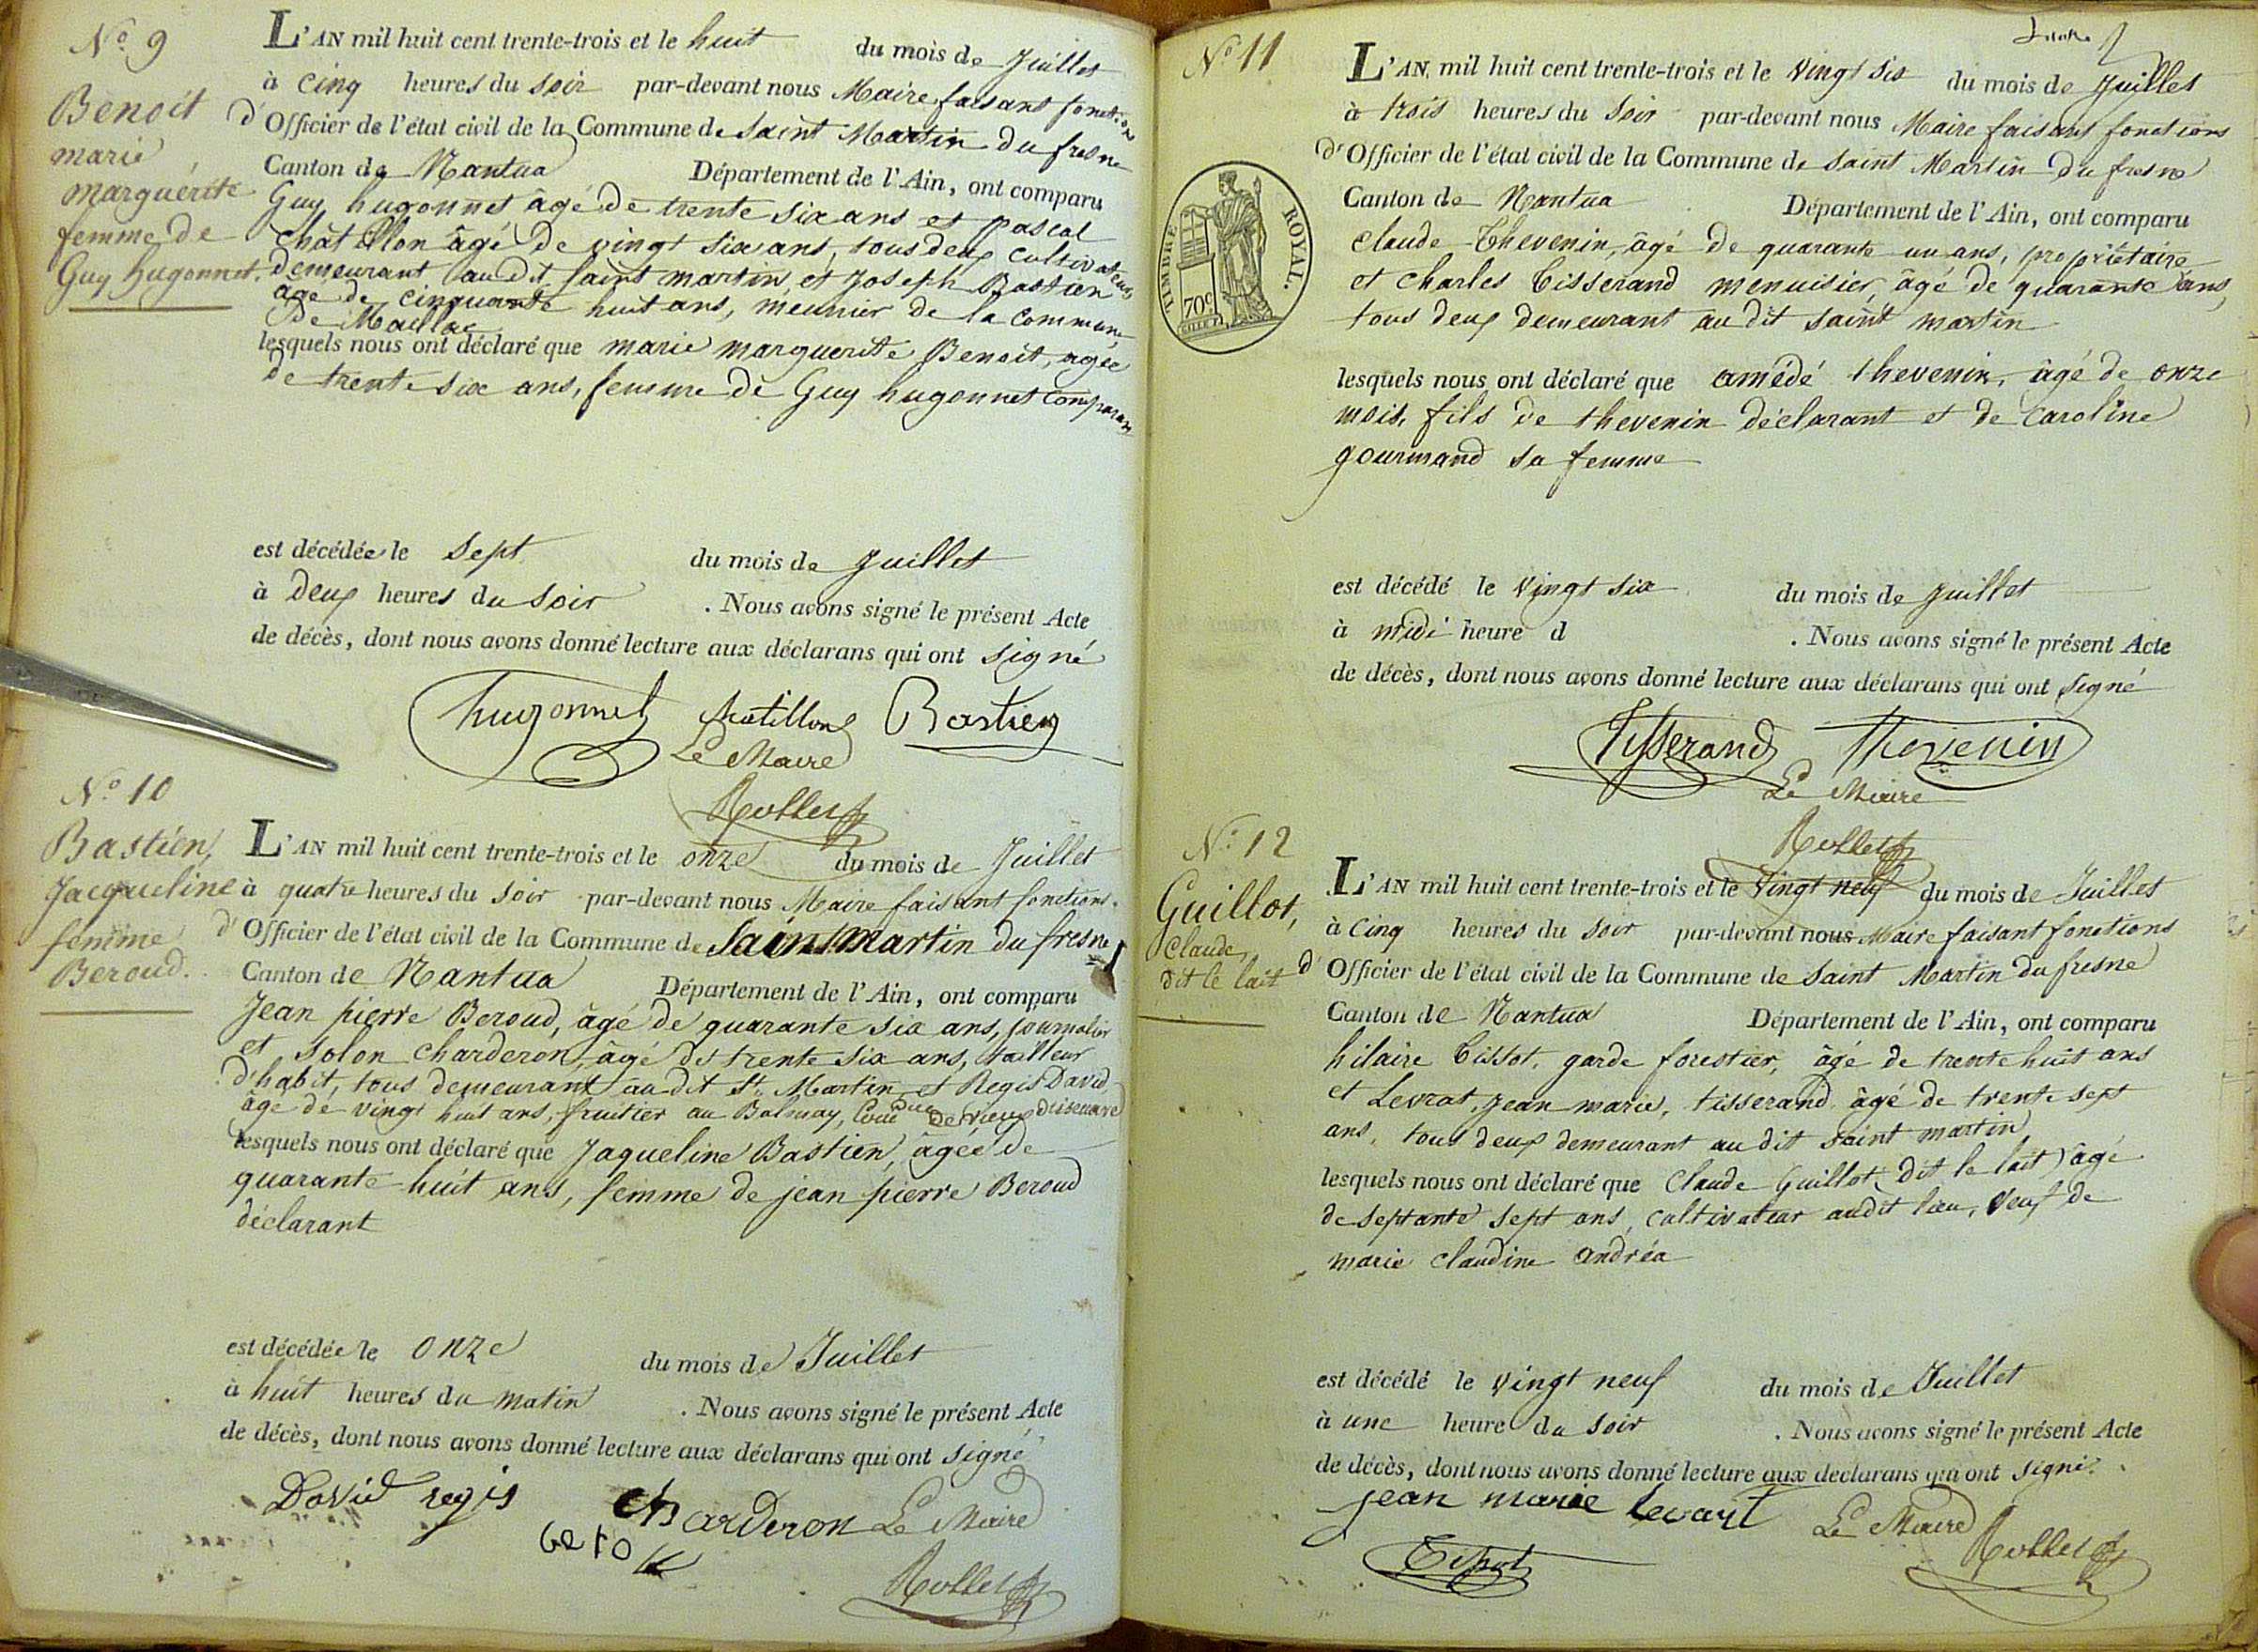 N.o 9
Benoit
marie
marguérite
femme de
Guy hugonnet.
L'AN mil huit cent trente-trois et le huit du mois de Juillet
à cinq heures du soir par-devant nous Maire faisant fonctions
d'Officier de l'état civil de la Commune de Saint Martin du fresne
Canton de Nantua Département de l'Ain, ont comparu
Guy hugonnet âgé de trente six ans et pascal
Châtillon âgé de vingt six ans, tous deux cultivateurs
demeurant au dit saint martin, et Joseph Bastien
âgé de cinquante huit ans, meunier de la commune
de Maillac
lesquels nous ont déclaré que marie marguerite Benoit, agée
de trente six ans, femme de Guy hugonnet comparant
est décédée le Sept du mois de Juillet
à Deux heures du Soir . Nous avons signé le présent Acte
de décès, dont nous avons donné lecture aux déclarans qui ont signé
hugonnet chatillon Bastien
Le Maire
Rollet
N.o 10
Bastien,
Jacqueline
femme
Beroud.
L'AN mil huit cent trente-trois et le onze du mois de Juillet
à quatre heures du soir par-devant nous Maire faisant fonctions
d'Officier de l'état civil de la Commune de Saint Martin du fresne
Canton de Nantua Département de l'Ain, ont comparu
Jean pierre Beroud, âgé de quarante six ans, journalier
et Solon Charderon, âgé de trente six ans, tailleur
d'habit, tous demeurant au dit St. Martin et Regis David
âgé de vingt huit ans, fruitier au Balmay, de Vieux
lesquels nous ont déclaré que Jaqueline Bastien, âgée de
quarante huit ans, femme de jean pierre Beroud
déclarant
est décédée le onze du mois de Juillet
à huit heures du matin . Nous avons signé le présent Acte
de décès, dont nous avons donné lecture aux déclarans qui ont signé
David regis Charderon Le Maire
Rollet
N.o 11
L'AN mil huit cent trente-trois et le vingt six du mois de Juillet
à trois heures du soir par-devant nous Maire faisant fonctions
d'Officier de l'état civil de la Commune de Saint Martin du fresne
Canton de Nantua Département de l'Ain, ont comparu
TIMBRE ROYAL.
70c
claude Thevenin, âgé de quarante un ans, propriétaire
et charles Tisserand menuisier, âgé de quarante ans,
tous deux demeurant au dit saint martin
lesquels nous ont déclaré que amédé thevenin, âgé de onze
mois, fils de thevenin déclarant et de Caroline
gourmand sa femme
est décédé le vingt six du mois de Juillet
à midi heure d . Nous avons signé le présent Acte
de décès, dont nous avons donné lecture aux déclarans qui ont signé
Tisserand Thevenin
Le Maire
Rollet
N.o 12
Guillot,
Claude,
dit le lait
L'AN mil huit cent trente-trois et le vingt neuf du mois de Juillet
à cinq heures du soir par-devant nous Maire faisant fonctions
d'Officier de l'état civil de la Commune de Saint Martin du fresne
Canton de Nantua Département de l'Ain, ont comparu
hilaire Tissot, garde forestier, âgé de trente huit ans
et Levrat, Jean marie, tisserand âgé de trente sept
ans, tous deux demeurant au dit saint martin
lesquels nous ont déclaré que Claude Guillot (dit le lait) âgé
de septante sept ans, cultivateur audit lieu, veuf de
marie claudine andréa
est décédé le vingt neuf du mois de Juillet
à une heure du soir . Nous avons signé le présent Acte
de décès, dont nous avons donné lecture aux déclarans qui ont signé.
jean marie levart Le Maire Rollet
Tissot